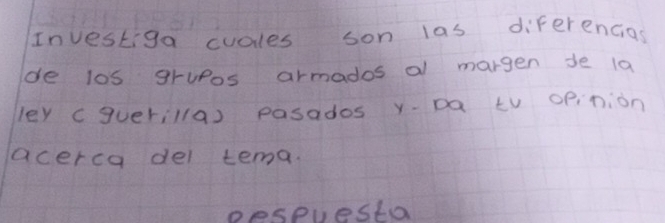 Investiga cuales son las diferencias
de los grupos armados al margen de la
ley (guerilla) pasados y. Da tu opinión
acerca del tema.
Respuesta